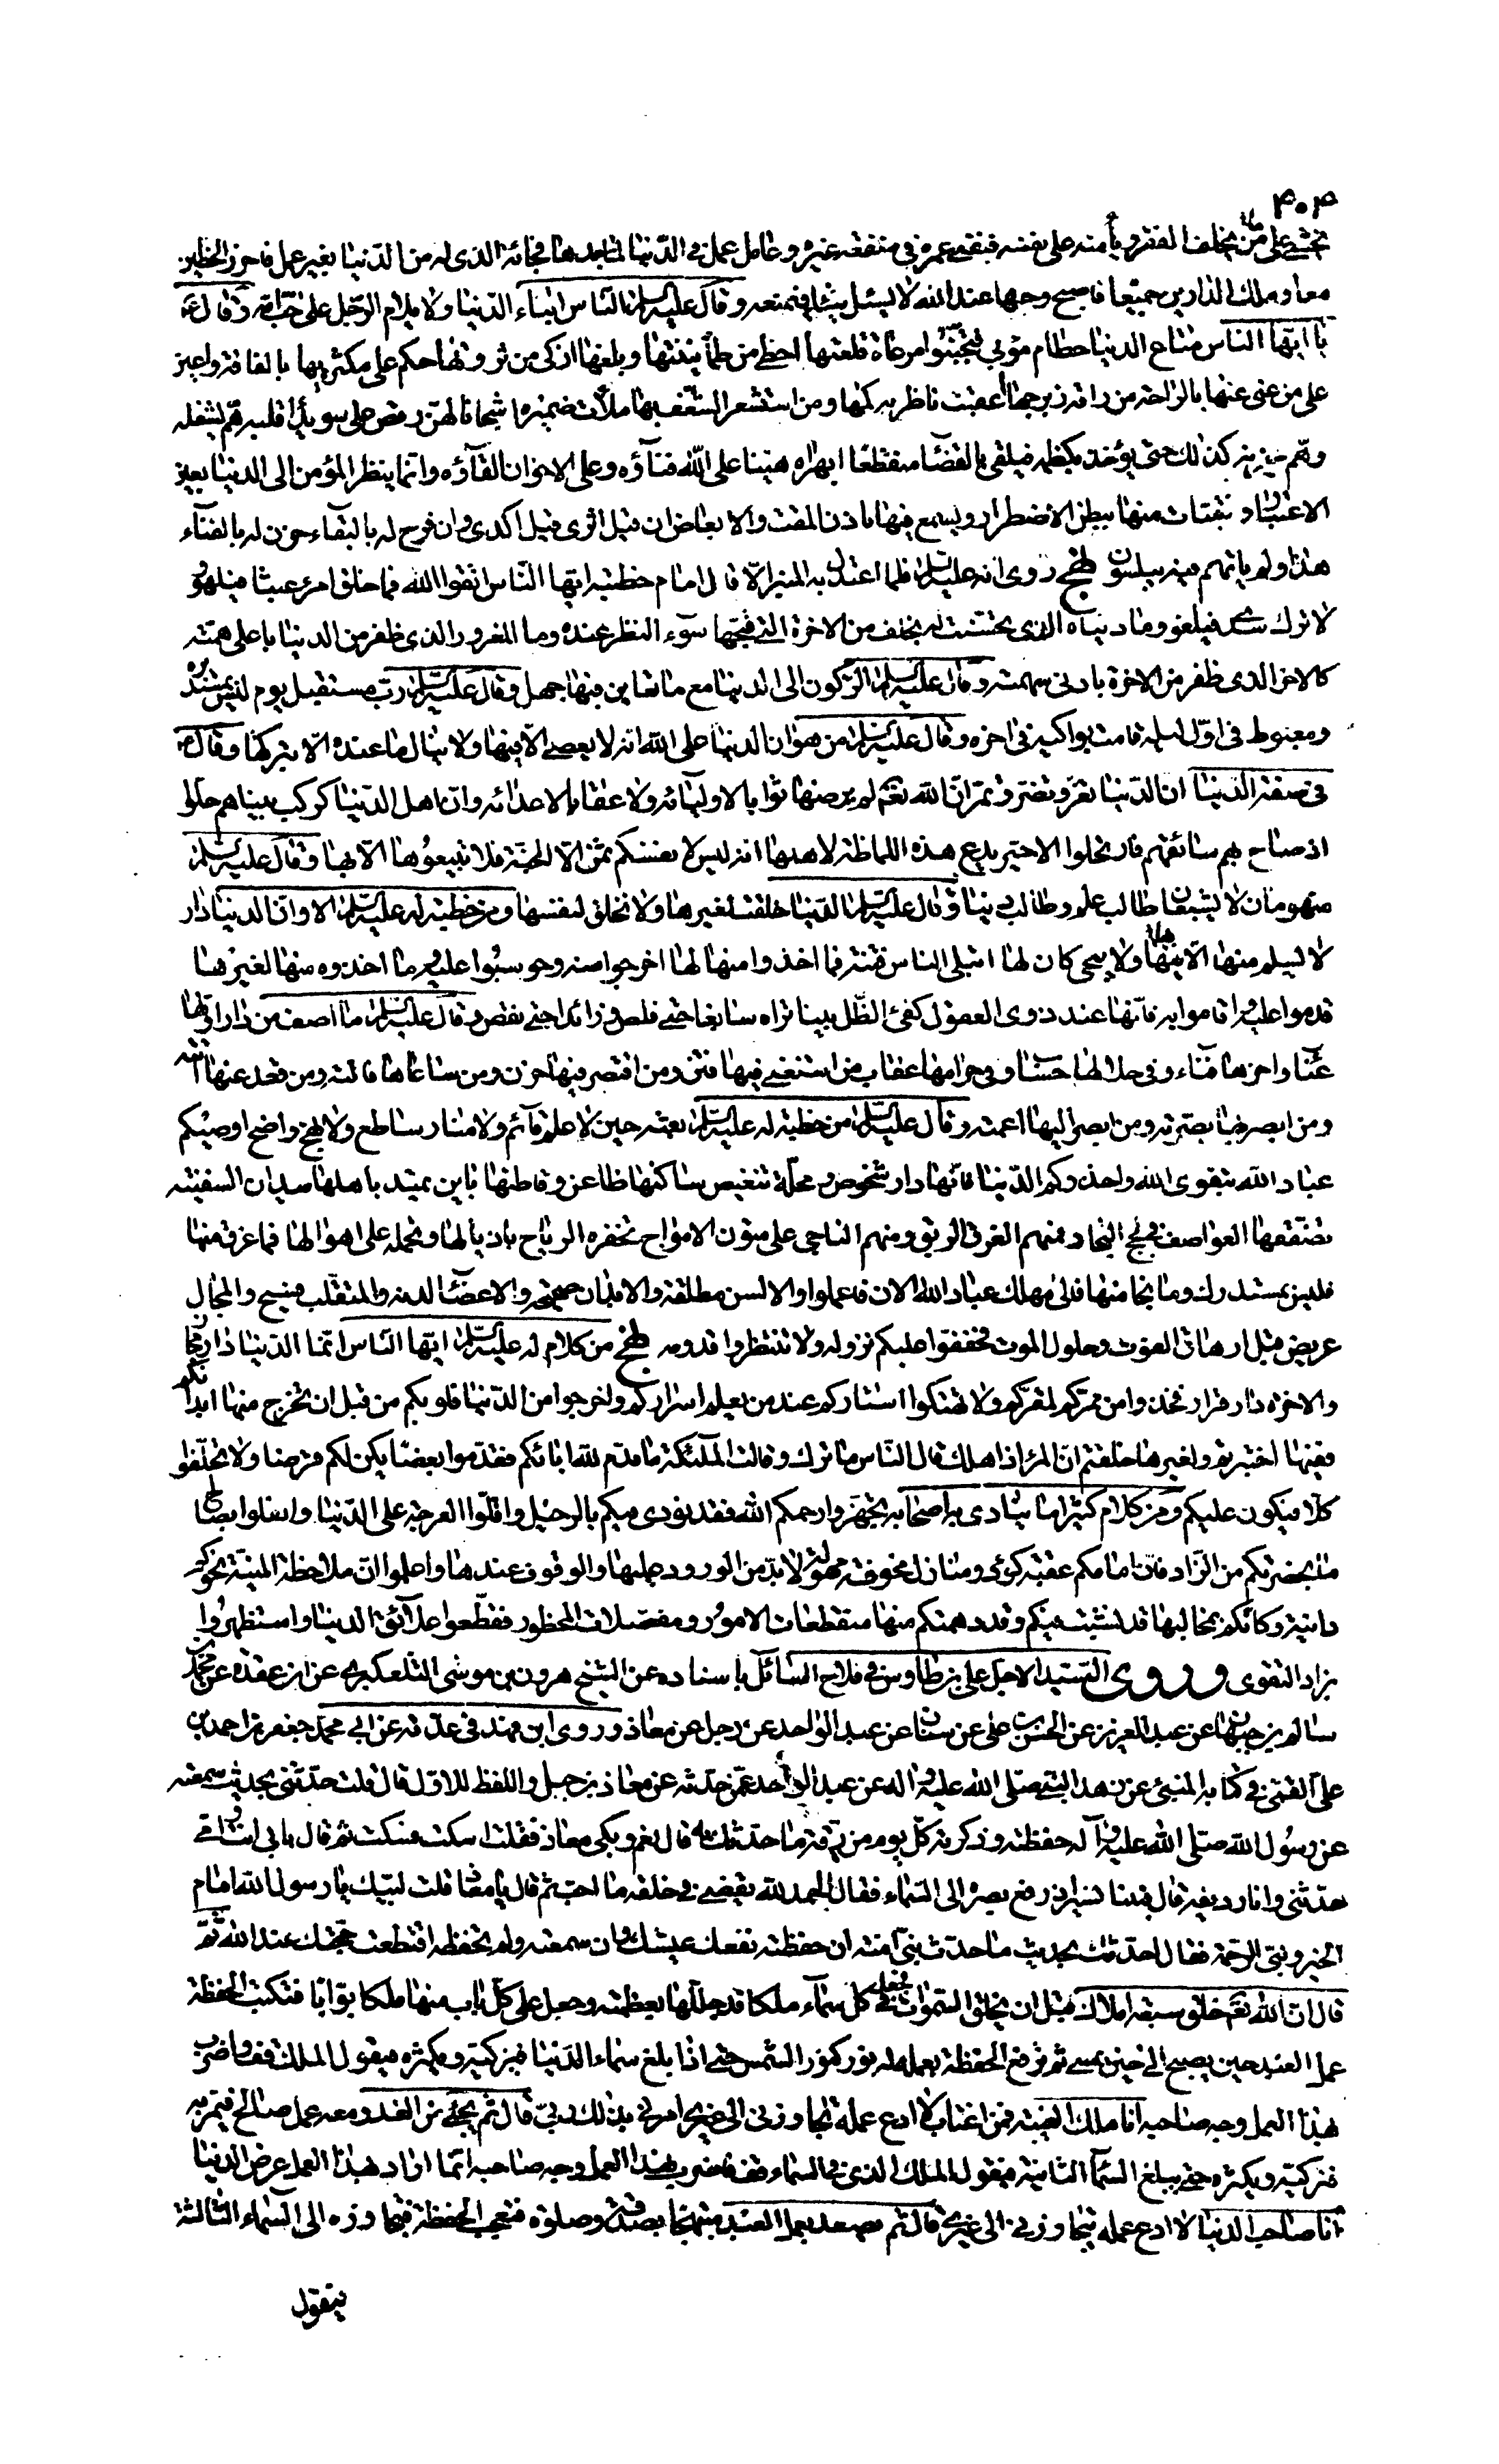 ۴۰۴
يخشى على من يخلف الفقر و يأمنه على نفسه فيفنى عمره فى منفعة غيره و عامل عمل فى الدنيا لما بعدها فجائه الذى له من الدنيا بغير عمل فاحرز الحظين
معا و ملك الدارين جميعا فاصبح وجيها عند الله لا يسئل شيئا فيمنعه و قال عليه السلم الناس ابناء الدنيا و لا يلام الرجل على حب امه و قال ع
يا ايها الناس متاع الدنيا حطام موبئ فتجنبوا مرعاة قلعتها احظى من طمأنينتها و بلغتها ازكى من ثروتها حكم على مكثريها بالفاقة و اعين
على من غنى عنها بالراحة من راقه زبرجها اعقبت ناظريه كمها و من استشعر الشعف بها ملأت ضميره اشجانا لهن رقص على سويداء قلبه هم يشغله
و هم يحزنه كذلك حتى يؤخذ بكظمه فيلقى بالفضاء منقطعا ابهراه هينا على الله فناؤه و على الاخوان القاؤه و انما ينظر المؤمن الى الدنيا بعين
الاعتبار و يقتات منها ببطن الاضطرار و يسمع فيها باذن المقت و الابغاض ان قيل اثرى قيل اكدى و ان فرح له بالبقاء حزن له بالفناء
هذا و لم ياتهم يوم فيه يبلسون نهج روى انه عليه السلم قلما اعتدل به المنبر الا قال امام خطبته ايها الناس اتقوا الله فما خلق امرء عبثا فيلهو و
لا ترك سدى فيلغو و ما دنياه الذى تحسنت له بخلف من الاخرة التى قبحها سوء النظر عنده و ما المغرور الذى ظفر من الدنيا باعلى همته
كالاخر الذى ظفر من الاخرة بادنى سهمته و قال عليه السلم الركون الى الدنيا مع ما تعاين منها جهل و قال عليه السلم رب مستقبل يوم ليس بمستدبره
و مغبوط فى اول ليله قامت بواكيه فى اخره و قال عليه السلم من هوان الدنيا على الله انه لا يعصى الا فيها و لا ينال ما عنده الا بتركها و قال ع
فى صفة الدنيا ان الدنيا تغر و تضر و تمر ان الله تعم لم يرضها ثوابا لاوليائه و لا عقابا لاعدائه و ان اهل الدنيا كركب بيناهم حلوا
اذ صاح بهم سائقهم فارتحلوا الا حر يدع هذه اللماظة لاهلها انه ليس لانفسكم ثمن الا الجنة فلا تبيعوها الا بها و قال عليه السلم
منهومان لا يشبعان طالب علم و طالب دنيا و قال عليه السلم الدنيا خلقت لغيرها و لا تخلق لنفسها و من خطبة له عليه السلم الا و ان الدنيا دار
لا يسلم منها الا فيها و لا ينجى كان لها ابتلى الناس فتنة فما اخذوا منها لها اخرجوا منه و حوسبوا عليه و ما اخذوه منها لغيرها
قدموا عليه و اقاموا به فانها عند ذوى العقول كفئ الظل بينا تراه سابغا حتى قلص و زائدا حتى نقص و قال عليه السلم ما اصف من دار اولها
عناء و اخرها فناء و فى حلالها حساب و فى حرامها عقاب من استغنى فيها فتن و من افتقر فيها حزن و من ساعاها فاتته و من قعد عنها اتته
و من ابصر بها بصرته و من ابصر اليها اعمته و قال عليه السلم من خطبة له عليه السلم بعثه حين لا علم قائم و لا منار ساطع و لا نهج واضح اوصيكم
عباد الله بتقوى الله و احذركم الدنيا فانها دار شخوص و محلة تنغيص ساكنها ظاعن و قاطنها باين تميد باهلها ميدان السفينة
تصفقها العواصف فى لجج البحار فمنهم الغرق الوبق و منهم الناجى على متون الامواج تحفزه الرياح باذيالها و تحمله على اهوالها فما غرق منها
فليس بمستدرك و ما نجا منها فالى مهلك عباد الله الان فاعملوا و الالسن مطلقة و الابدان صحيحة و الاعضاء لدنة و المنقلب فسيح و المجال
عريض قبل ارهاق الفوت و حلول الموت فحققوا عليكم نزوله و لا تنتظروا قدومه نهج من كلام له عليه السلم ايها الناس انما الدنيا دار مجاز
و الاخرة دار قرار فخذوا من ممركم لمقركم و لا تهتكوا استاركم عند من يعلم اسراركم و اخرجوا من الدنيا قلوبكم من قبل ان تخرج منها ابدانكم
ففيها اختبرتم و لغيرها خلقتم ان المرء اذا هلك قال الناس ما ترك و قالت الملئكة ما قدم لله ابائكم فقدموا بعضا يكن لكم قرضا و لا تخلفوا
كلا فيكون عليكم و من كلام كثيرا ما ينادى به اصحابه تجهزوا رحمكم الله فقد نودى فيكم بالرحيل و اقلوا العرجة على الدنيا و انقلبوا بصالح
ما بحضرتكم من الزاد فان امامكم عقبة كؤدا و منازل مخوفة مهولة لا بد من الورود عليها و الوقوف عندها و اعلموا ان ملاحظة المنية نحوكم
دانية و كانكم بمخالبها قد نشبت فيكم و قد دهمتكم منها مفظعات الامور و معضلات المحظور فقطعوا علائق الدنيا و استظهروا
بزاد التقوى و روى السيد الاجل على بن طاوس فى فلاح السائل باسناده عن الشيخ هرون بن موسى التلعكبرى عن ابن عقدة عن محمد بن
سالم بن جبهان عن عبد العزيز عن الحسن بن على عن سنان عن عبد الواحد عن رجل عن معاذ و روى ابن فهد فى عدته عن ابى محمد جعفر بن احمد بن
على القمى فى كتابه المنبئ عن زهد النبى صلى الله عليه و اله عن عبد الواحد عمن حدثه عن معاذ بن جبل و اللفظ للاول قال قلت حدثنى بحديث سمعته
عن رسول الله صلى الله عليه و آله حفظته و ذكرته كل يوم من رقة ما حدثك به قال نعم و بكى معاذ فقلت اسكت فسكت ثم قال بابى و امى
حدثنى و انا رديفه قال فبينا نسير اذ رفع بصره الى السماء فقال الحمد لله يقضى فى خلقه ما احب ثم قال يا معاذ قلت لبيك يا رسول الله امام
الخير و نبى الرحمة فقال احدثك بحديث ما حدث نبى امته ان حفظته نفعك عيشك و ان سمعته و لم تحفظه انقطعت حجتك عند الله ثم
قال ان الله تعم خلق سبعة املاك قبل ان يخلق السموات فجعل فى كل سماء ملكا قد جللها بعظمته و جعل على كل باب منها ملكا بوابا فتكتب الحفظة
عمل العبد حين يصبح الى حين يمسى ثم ترفع الحفظة بعمله له نور كنور الشمس حتى اذا بلغ سماء الدنيا فتزكيه و تكثره فيقول الملك قفوا و اضربوا
هذا العمل وجه صاحبه انا ملك الغيبة فمن اغتاب لا ادع عمله تجاوزنى الى غيرى امرنى بذلك ربى قال ثم يجئ من الغد و معه عمل صالح فتمر به
فتزكيه و تكثره حتى يبلغ السماء الثانية فيقول الملك الذى فى السماء قف فاضرب بهذا العمل وجه صاحبه انما اراد بهذا العمل عرض الدنيا
انا صاحب الدنيا لا ادع عمله يتجاوزنى الى غيرى قال ثم تصعد بعمل العبد مبتهجا بصدقة و صلوة فتعجب الحفظة فيجاوزه الى السماء الثالثة
فيقول